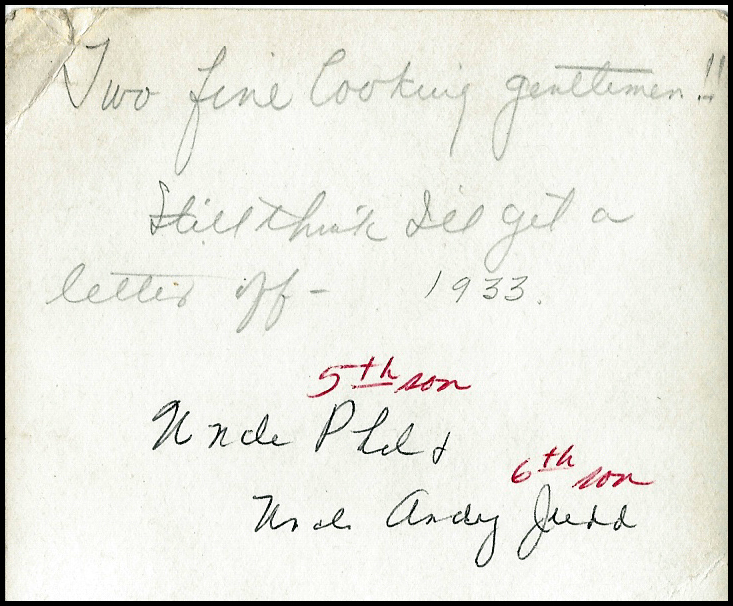 Two fine looking gentlemen!!
Still think I'll get a
letter off - 1933.
5th son
Uncle Phil &
6th son
Uncle Andy Judd